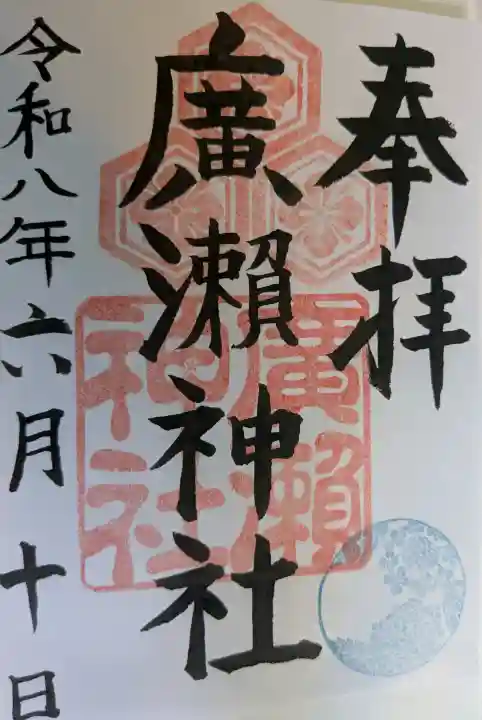 奉拝
廣瀬神社
廣瀬神社
令和八年六月十日